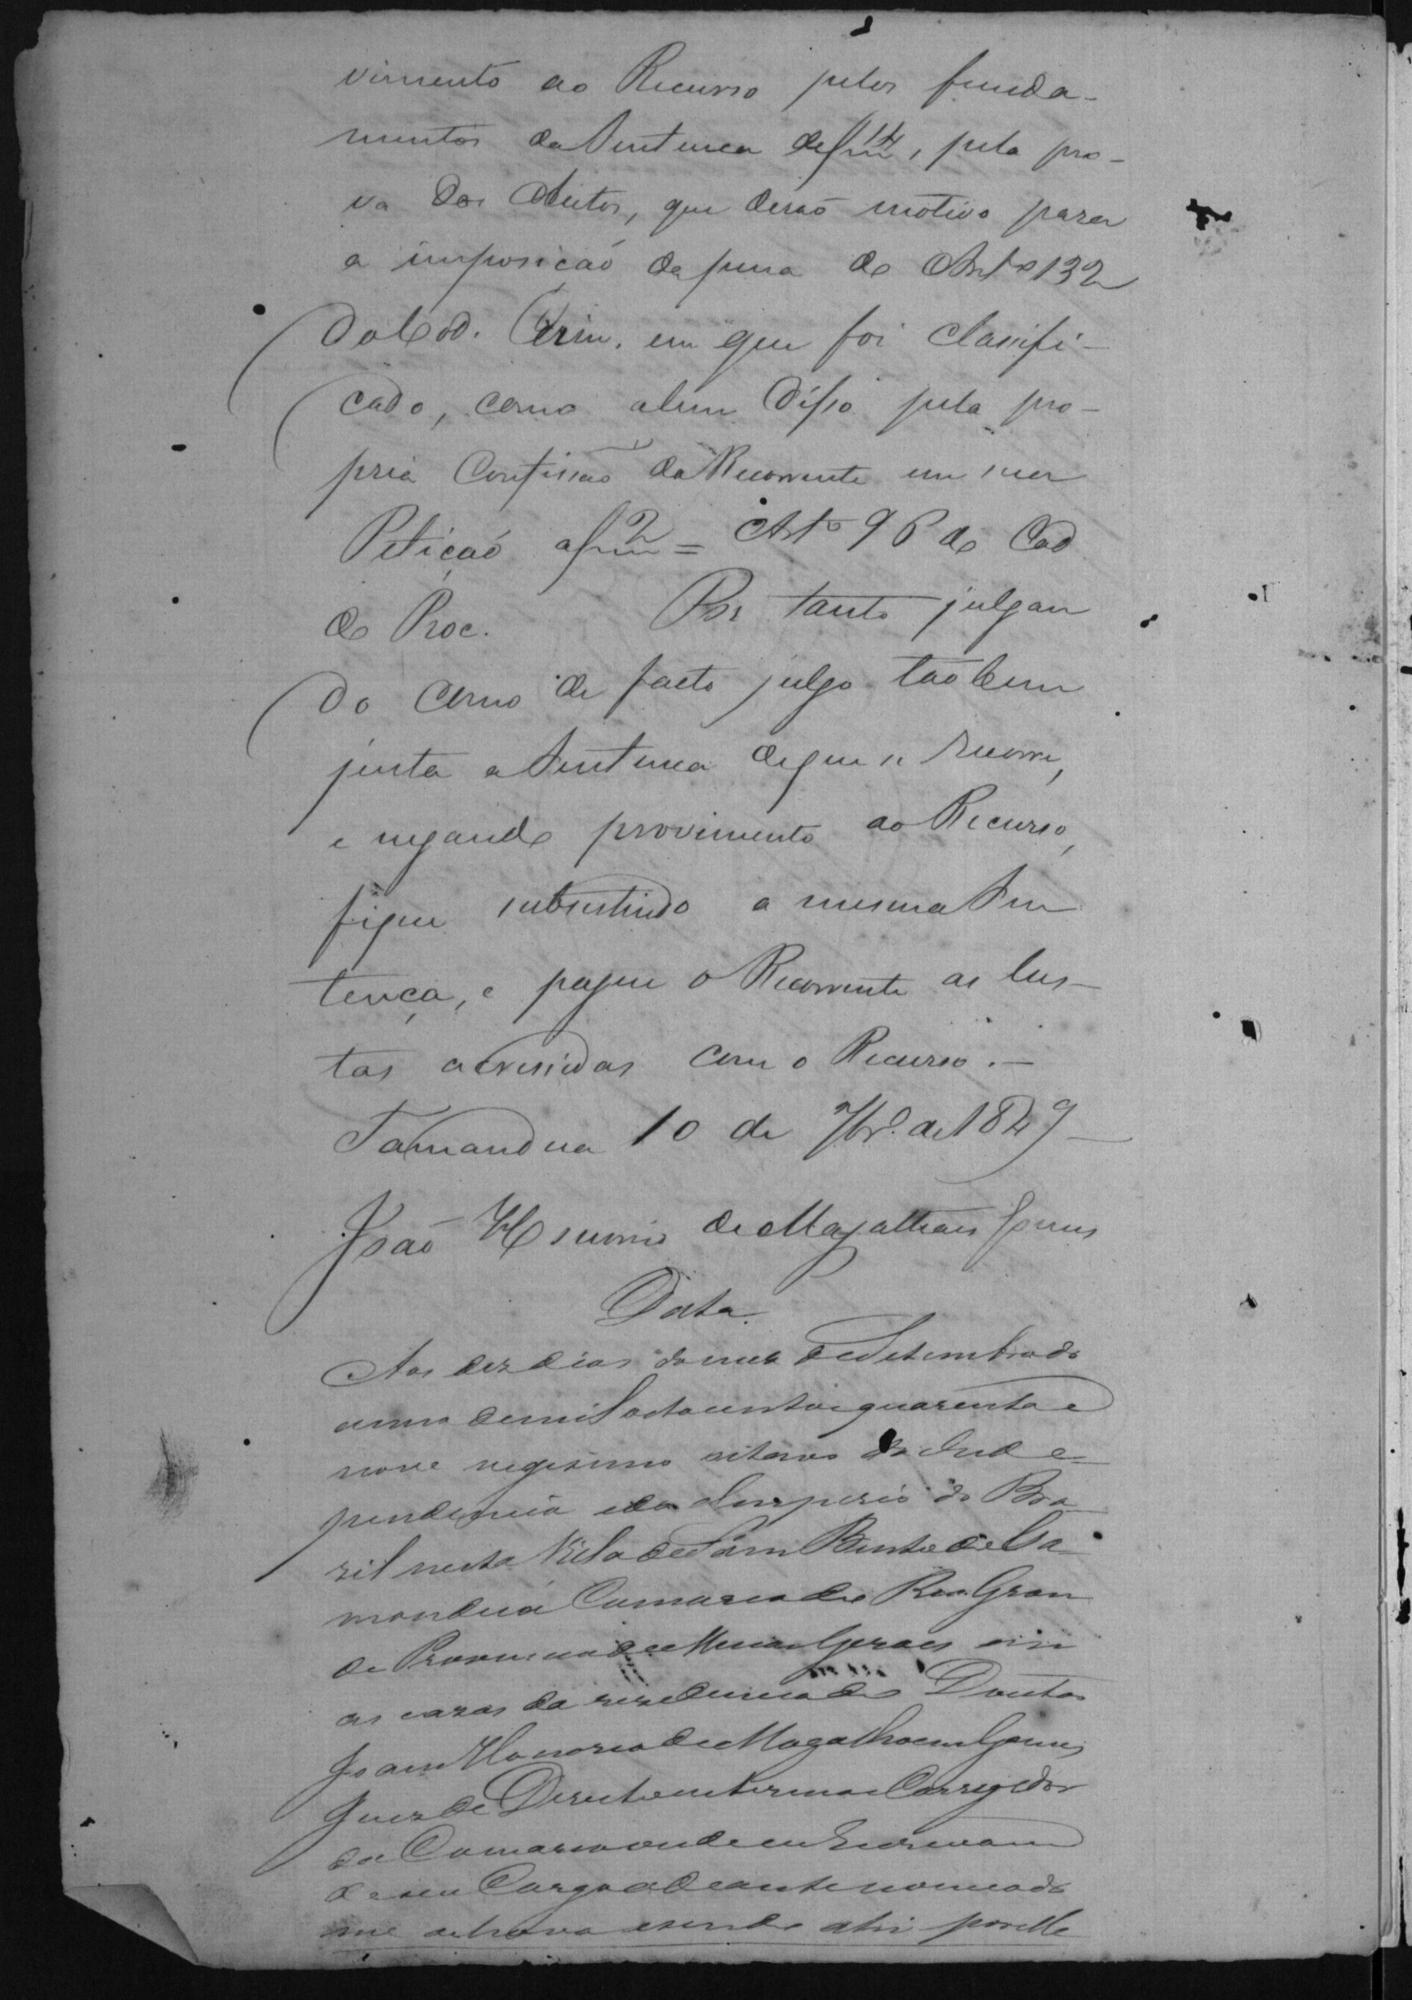 vimento ao Recurso pelos funda-
mentos da Sentenca de f 14, pela pro-
va dos Autos, que derão motivo para
a imposicaó da pena do Art.o 132
do Cod. Crim. em que foi classifi-
cado, como alem disso pela pro-
pria Confissão do Recorrente em sua
Petiçaó a f 2 = Art.o 96 do Cod
do Proc. Por tanto julgan
do como de facto julgo tão bem
justa a Sentenca de que se recorre,
e negando provimento ao Recurso,
fique subsistindo a mesma Sen
tença, e pague o Recorrente as Cus-
tas acrescidas com o Recurso. -
Tamandua 10 de 7br.o de 1849
João Honorio de Magalhães Gomes
Data.
Aos dez dias do mez de Setembro do
anno de mil oito centos e quarenta e
nove vigesimo oitavo da Inde-
pendencia e do Imperio do Bra
zil nesta Villa de Sam Bento de Ta
manduá Comarca do Rio Gran
de Provincia de Minas Geraes em
as cazas da rezidencia do Doutor
Joam Honorio de Magalhaens Gomes
Juiz de Direito interino e Corregedor
da Comarca onde eu Escrivam
de seu Cargo ao deante nomeado
me achava e sendo ahi por elle